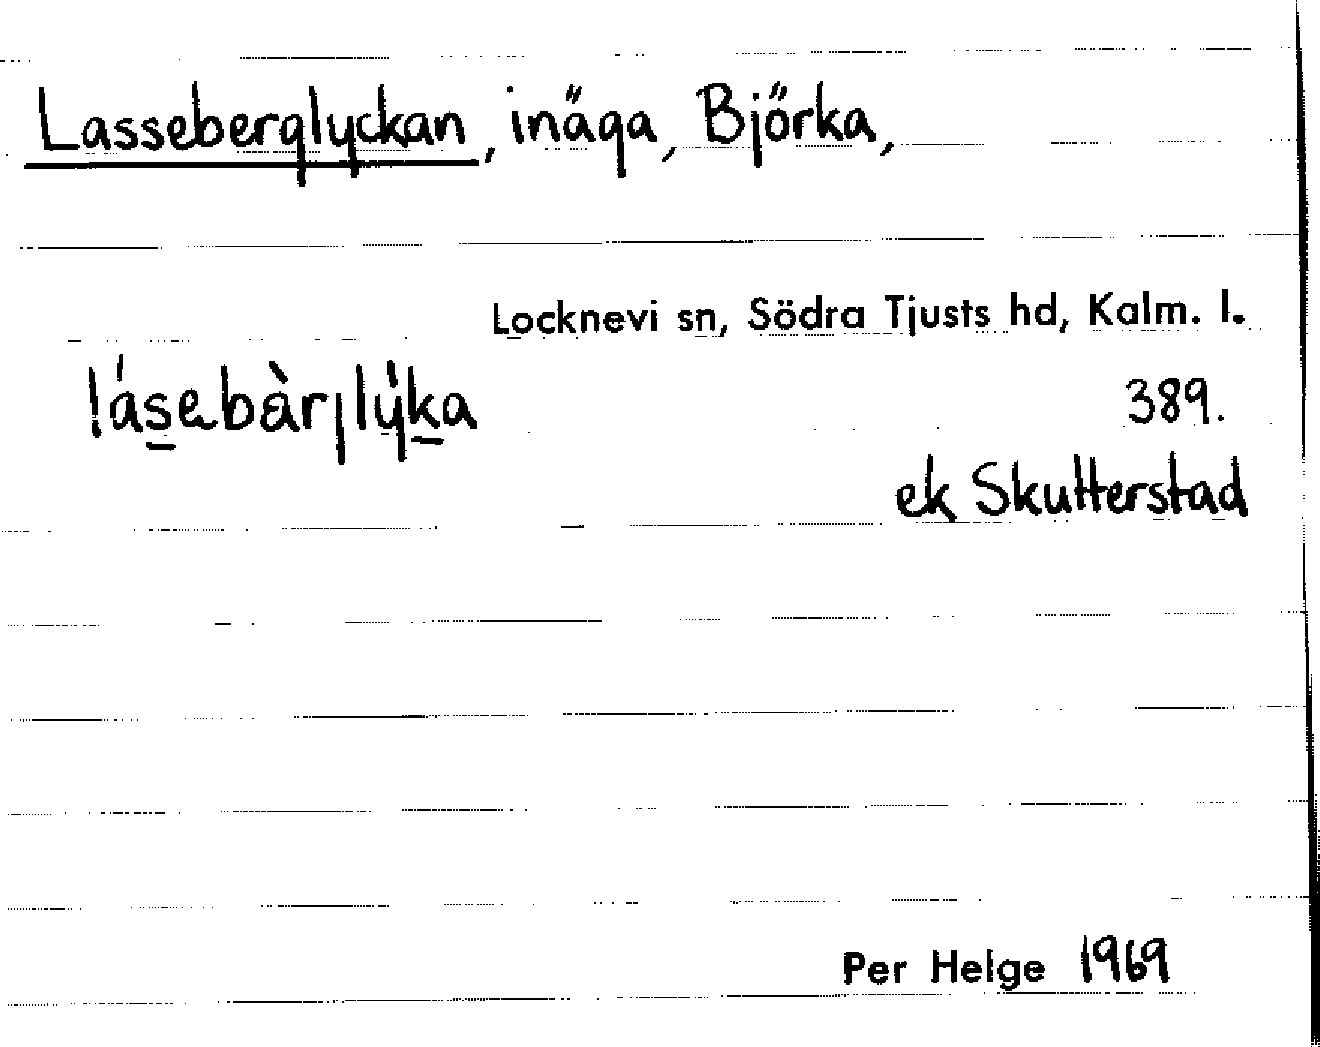 Lasseberglyckan, inäga, Björka,
Locknevi sn, Södra Tjusts hd, Kalm. l.
lás̲ebàrjlẏk̲a
389.
ek Skutterstad
Per Helge 1969